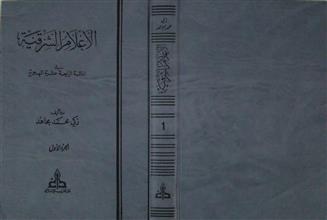 الأعلام الشرقية
في
المائة الرابعة عشرة الهجرية
تأليف
زكي محمد مجاهد
الجزء الأول
الأعلام الشرقية
١